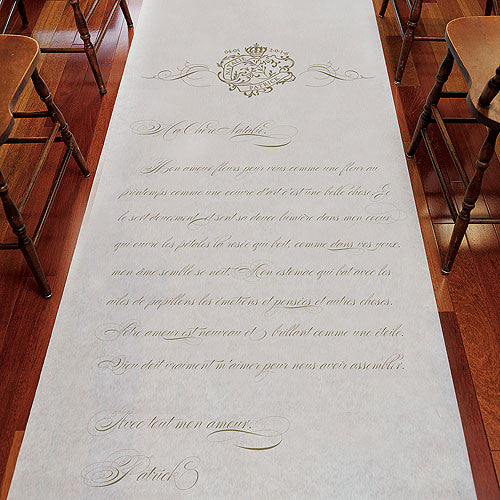 Ma Chère Natalie,
Mon amour fleurs pour vous comme une fleur au
printemps comme une oeuvre d'art c'est une belle chose. Je
le sert doucement et sent sa douce lumière dans mon coeur
qui ouvre les pétales la rosée qui boit, comme dans vos yeux,
mon âme semble se noit. Mon estemac qui bat avec les
ailes de papillons les émotions et pensées et autres choses.
Notre amour est nouveau et brillant comme une étoile.
Dieu doit vraiment m'aimer pour nous avoir assembler.
Avec tout mon amour,
Patrick